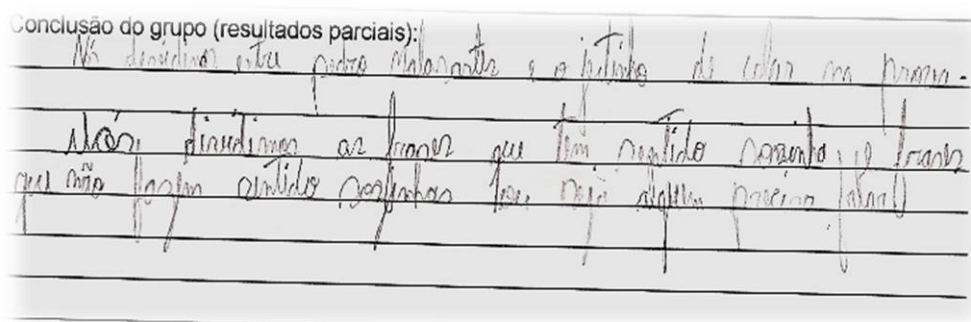 Conclusão do grupo (resultados parciais):
Nós dividimos entre pedro Malasartes e o jeitinho de colar na prova.
Nós dividimos as frases que tem sentido sozinha, e frases
que não fazem sentido sozinhas (ou seja alguém precisa falar)